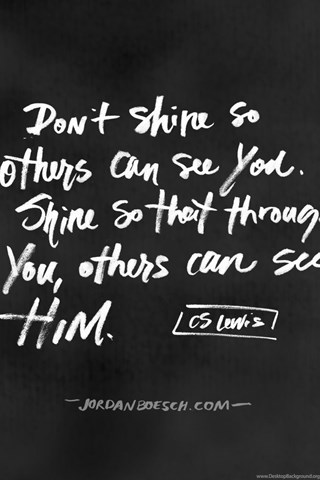 Don't shine so
others can see You.
Shine so that throug
You, others can see
HIM.
CS Lewis
-JORDANBOESCH.COM-
www.DesktopBackground.org